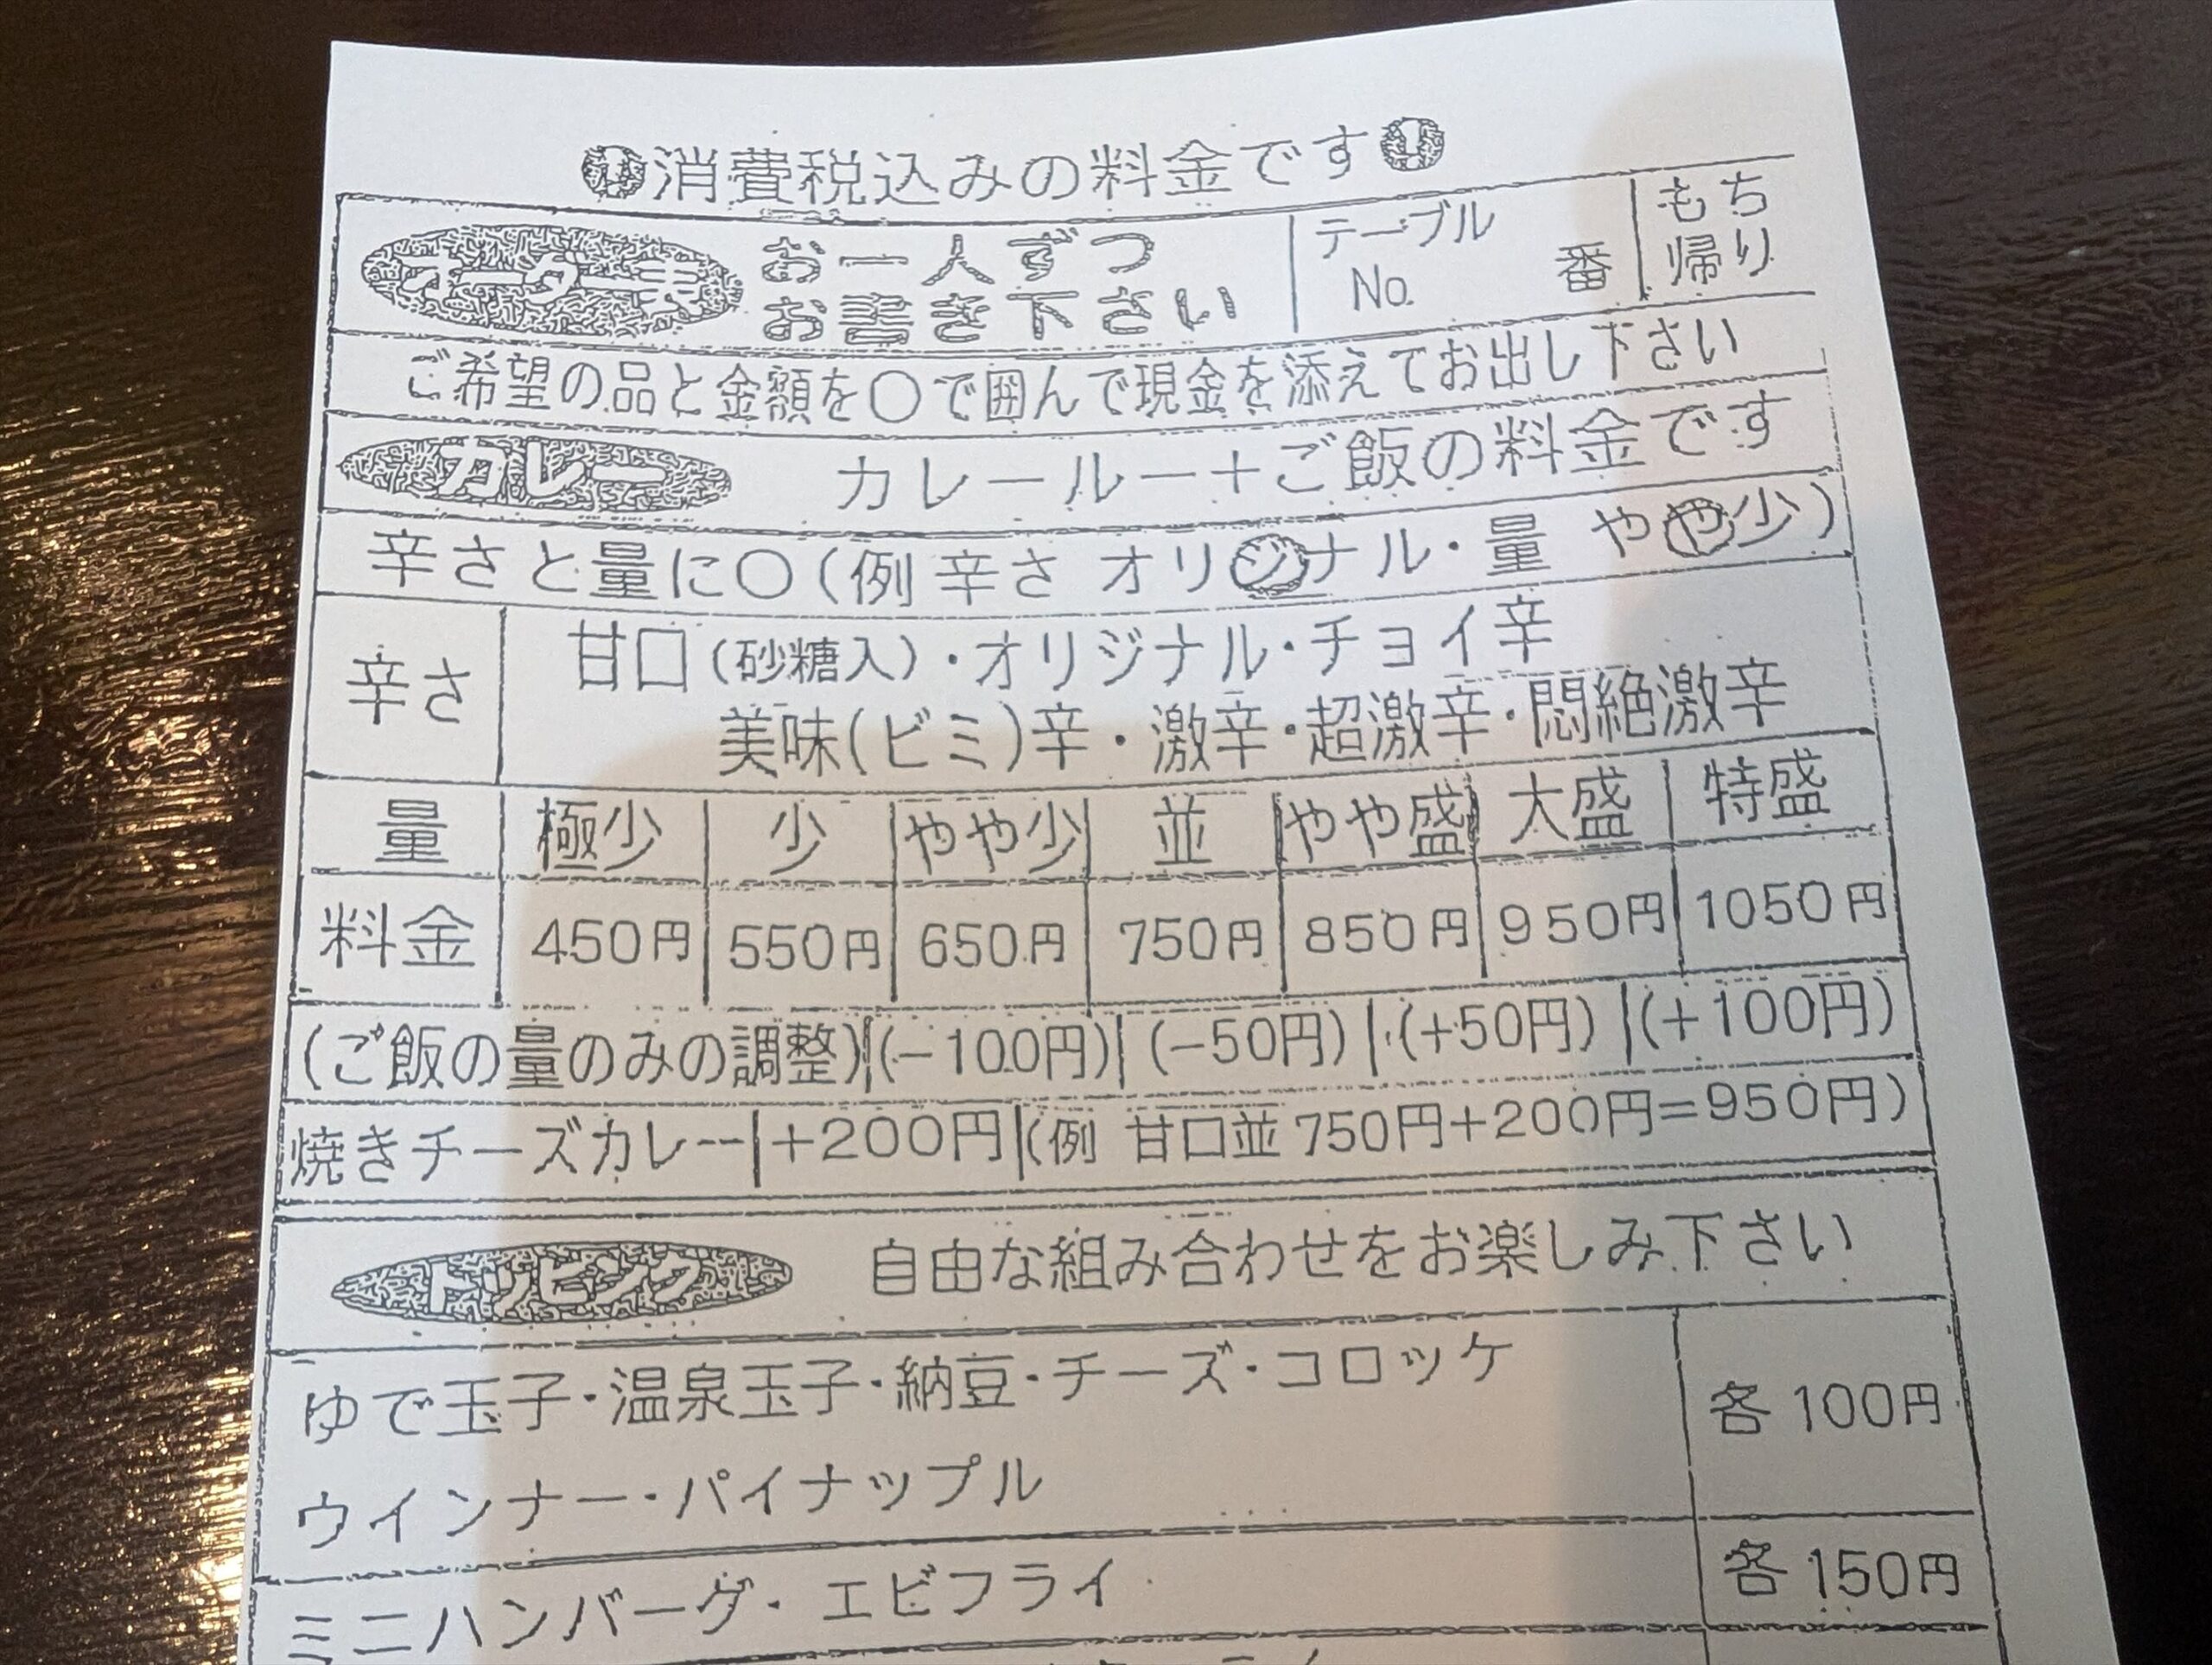 消費税込みの料金です
オーダー表 お一人ずつ お書き下さい テーブル No. 番 もち帰り
ご希望の品と金額を〇で囲んで現金を添えてお出し下さい
カレー カレールー+ご飯の料金です
辛さと量に〇(例 辛さ オリジナル・量 やや少)
辛さ 甘口(砂糖入)・オリジナル・チョイ辛
美味(ビミ)辛・激辛・超激辛・悶絶激辛
量 極少 少 やや少 並 やや盛 大盛 特盛
料金 450円 550円 650円 750円 850円 950円 1050円
(ご飯の量のみの調整) (-100円) (-50円) (+50円) (+100円)
焼きチーズカレー +200円 (例 甘口並750円+200円=950円)
トッピング 自由な組み合わせをお楽しみ下さい
ゆで玉子・温泉玉子・納豆・チーズ・コロッケ 各100円
ウインナー・パイナップル
ミニハンバーグ・エビフライ 各150円